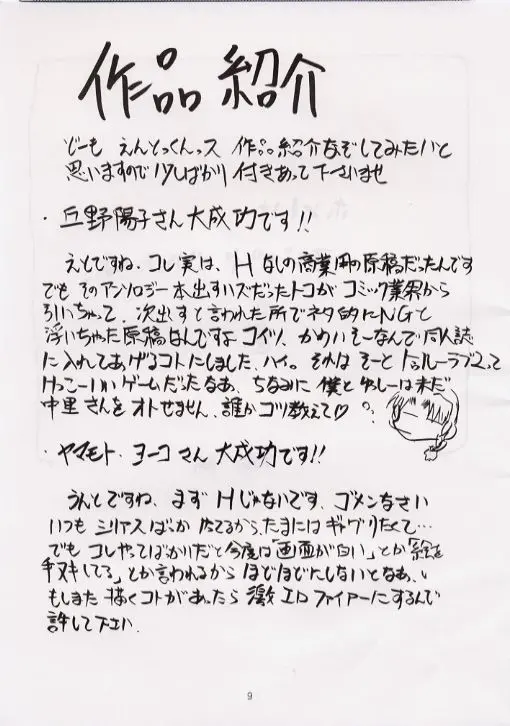 作品紹介
どーも えんどっくんっス 作品紹介なぞしてみたいと
思いますので少しばかり 付きあって下さいませ
・丘野陽子さん大成功です!!
えとですね、コレ実は、Hなしの商業用の原稿だったんです
でも そのアンソロジー本出すハズだったトコが コミック業界から
引いちゃって、次出すと言われた所でネタ的にNGと
浮いちゃった原稿なんですよ コイツ、かわいそーなんで同人誌
に入れてあげるコトにしました、ハイ。それは そーと トゥルーラブって
けっこーいいゲームだったなあ、ちなみに 僕と は未だ
中里さんをオトせません、誰かコツ教えて♡
・ヤマモト・ヨーコさん 大成功です!!
うんとですね、まず Hじゃないです、ゴメンなさい
いつも シリアスばっか だてるから、たまにはギャグりたくて…
でも コレやってばかりだと今度は「画面が白い」とか「絵を
手ヌキしてる」とか言われるから ほどほどにしないとなあ、
もしまた 描くコトがあったら 激エロファイアーにするんで
許して下さい.
9